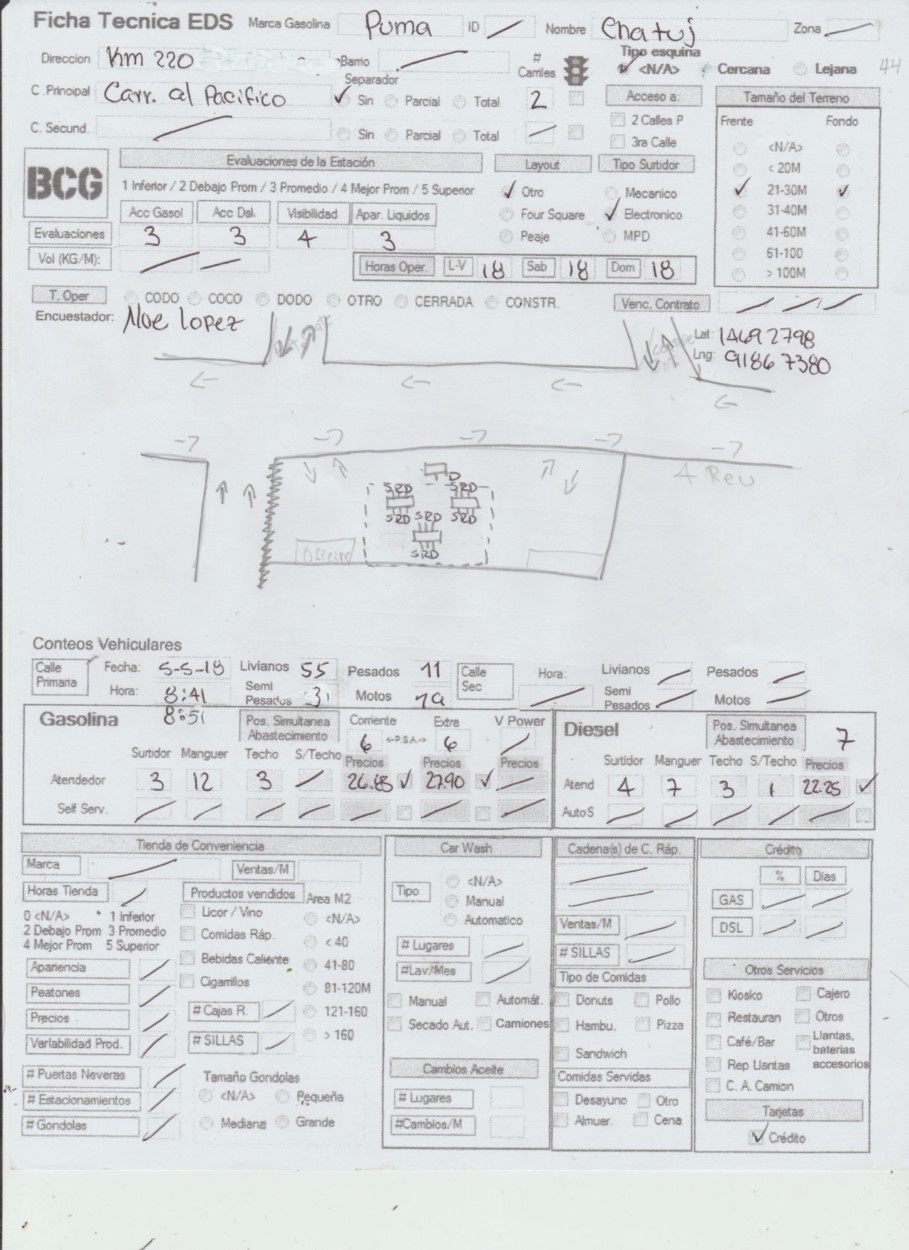 Ficha Tecnica EDS Marca Gasolina Puma ID Nombre Chatuj Zona
Direccion Km 220 Barrio # Carriles Tipo esquina <N/A> Cercana Lejana 44
C .Principal Carr. al Pacifico Separador Sin Parcial Total 2 Acceso a: Tamaño del Terreno
C. Secund. Sin Parcial Total 2 Calles P 3ra Calle Frente Fondo
<N/A>
< 20M
21-30M
31-40M
41-60M
61-100
> 100M
BCG Evaluaciones de la Estación Layout Tipo Surtidor
1 Inferior / 2 Debajo Prom / 3 Promedio / 4 Mejor Prom / 5 Superior Otro Mecanico
Acc Gasol Acc Dsl. Visibilidad Apar. Liquidos Four Square Electronico
Evaluaciones 3 3 4 3 Peaje MPD
Vol (KG/M): Horas Oper. L-V 18 Sab 18 Dom 18
T. Oper CODO COCO DODO OTRO CERRADA CONSTR. Venc. Contrato
Encuestador: Noe lopez
Lat: 14692798
Lng: 91867380
4 Rev
D
SRD SRD
SRD SRD SRD
SRD
Conteos Vehiculares
Calle Primaria Fecha: 5-5-18 Livianos 55 Pesados 11 Calle Sec Hora: Livianos Pesados
Hora: 8:41 Semi Pesados 31 Motos 19 Semi Pesados Motos
8:51
Gasolina Pos. Simultanea Abastecimiento Corriente 6 <-P.S.A-> Extra 6 V Power Diesel Pos. Simultanea Abastecimiento 7
Surtidor Manguer Techo S/Techo Precios Precios Precios Surtidor Manguer Techo S/Techo Precios
Atendedor 3 12 3 26.85 27.90 Atend 4 7 3 1 22.25
Self Serv. AutoS
Tienda de Conveniencia Car Wash Cadena(s) de C. Ráp. Crédito
Marca Ventas/M
Horas Tienda Productos vendidos Area M2
0 <N/A> * 1 Inferior
2 Debajo Prom 3 Promedio
4 Mejor Prom 5 Superior
Licor / Vino
Comidas Ráp.
Bebidas Caliente
Cigarrillos
# Cajas R.
# SILLAS
<N/A>
< 40
41-80
81-120M
121-160
> 160
Apariencia
Peatones
Precios
Variabilidad Prod.
# Puertas Neveras
# Estacionamientos
# Gondolas
Tamaño Gondolas
<N/A> Pequeña
Mediana Grande
Tipo <N/A>
Manual
Automatico
# Lugares
#Lav/Mes
Manual Automát.
Secado Aut. Camiones
Cambios Aceite
# Lugares
#Cambios/M
Ventas/M
# SILLAS
Tipo de Comidas
Donuts Pollo
Hambu. Pizza
Sandwich
Comidas Servidas
Desayuno Otro
Almuer. Cena
% Dias
GAS
DSL
Otros Servicios
Kiosko Cajero
Restauran Otros
Café/Bar Llantas, baterias accesorios
Rep Llantas
C. A. Camion
Tarjetas
Crédito